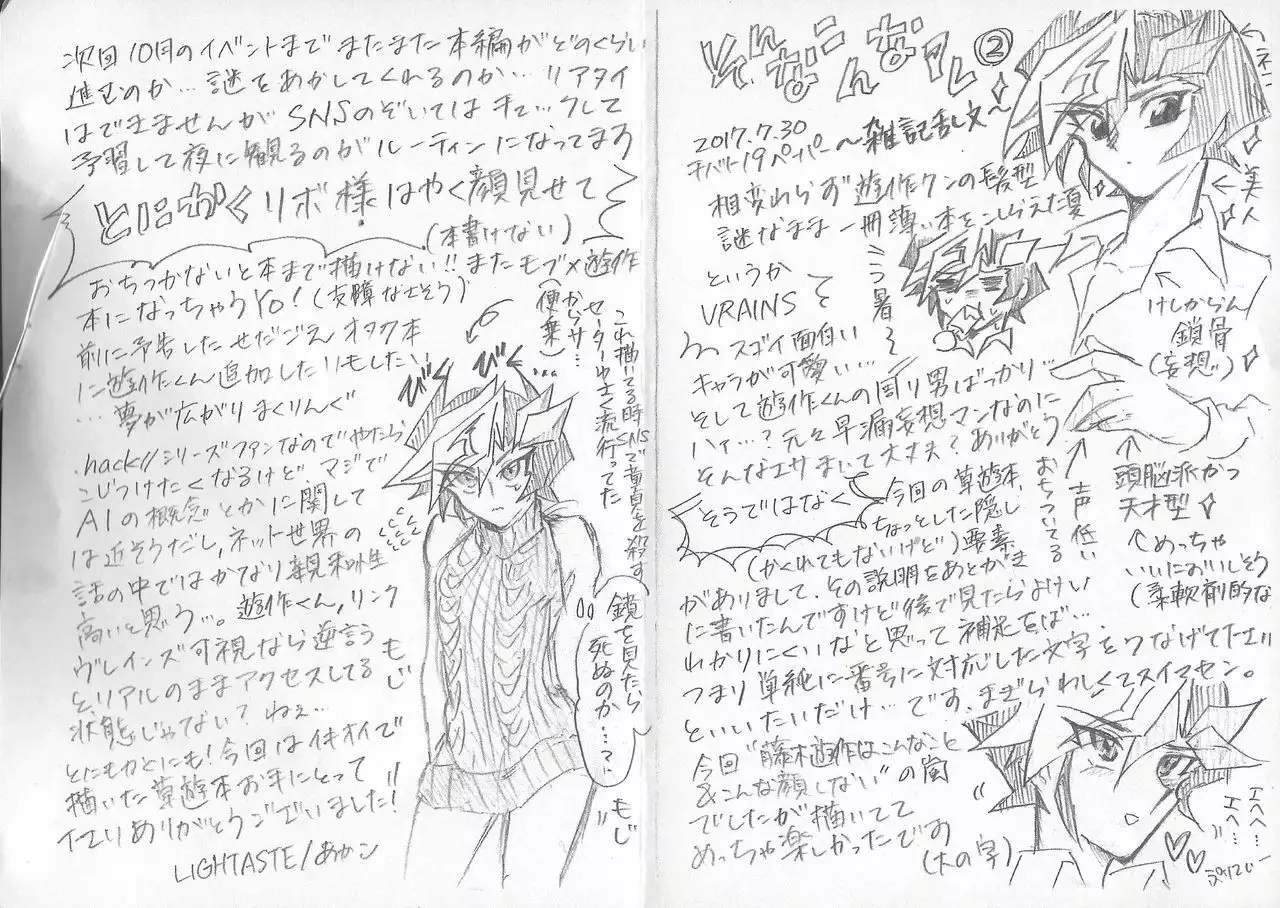 ②
2017.7.30
～雑記乱文～
相変わらず遊作クンの髪型
謎なまま一冊薄い本をこしらえた夏
というか
VRAINS
スゴイ面白い
キャラが可愛い…
そして遊作くんの周り男ばっかり…
ハァ…?元々早漏妄想マンなのに
そんなエサまいて大丈夫?ありがとう
そうではなく
今回の草遊本、
ちょっとした隠し
(かくれてもないけど)要素
がありまして、その説明をあとがき
に書いたんですけど後で見たらよけい
わかりにくいなと思って補足をば…
つまり単純に番号に対応した文字をつなげてただ
といいたいだけ…です、まぎらわしくてスイマセン。
今回"藤木遊作はこんなこと
&こんな顔しない"の嵐
でしたが描いてて
めっちゃ楽しかったです
(大の字)
美人
けしからん
鎖骨
(妄想)
頭脳派かつ
天才型
声低い
おちついてる
めっちゃ
いいにおいしそう
(柔軟剤的な
エヘヘ…
エヘ…
次回10月のイベントまでまたまた本編がどのくらい
進むのか…謎をあかしてくれるのか…リアタイ
はできませんがSNSのぞいてはキャ…うして
予習して夜に観るのがルーティンになってます
とにかくリボ様はやく顔見せて
(本書けない)
おちつかないと本まで描けない!!またモブ×遊作
本になっちゃうYO!(支障なさそう)
前に予告したせだごえオタク本
に遊作くん追加したりもしたい
…夢が広がりまくりんぐ
.hack//シリーズファンなのでやたら
こじつけたくなるけど、マジで
AIの概念とかに関して
は近そうだし、ネット世界の
話の中ではかなり親和性
高いと思う…。遊作くん、リンク
ヴレインズ可視なら逆言う
と、リアルのままアクセスしてる
状態じゃない?ねぇ…
とにもかくにも!今回はイキオイで
描いた草遊本お手にとって
イただきありがとうございました!
LIGHTASTE/あかン
これ描いてる時SNSで童貞を殺す
セーターわりと流行ってた
かんサ…
(便乗)
びく
びく
…
鎖を見たら
死ぬのか…?
もじ
もじ